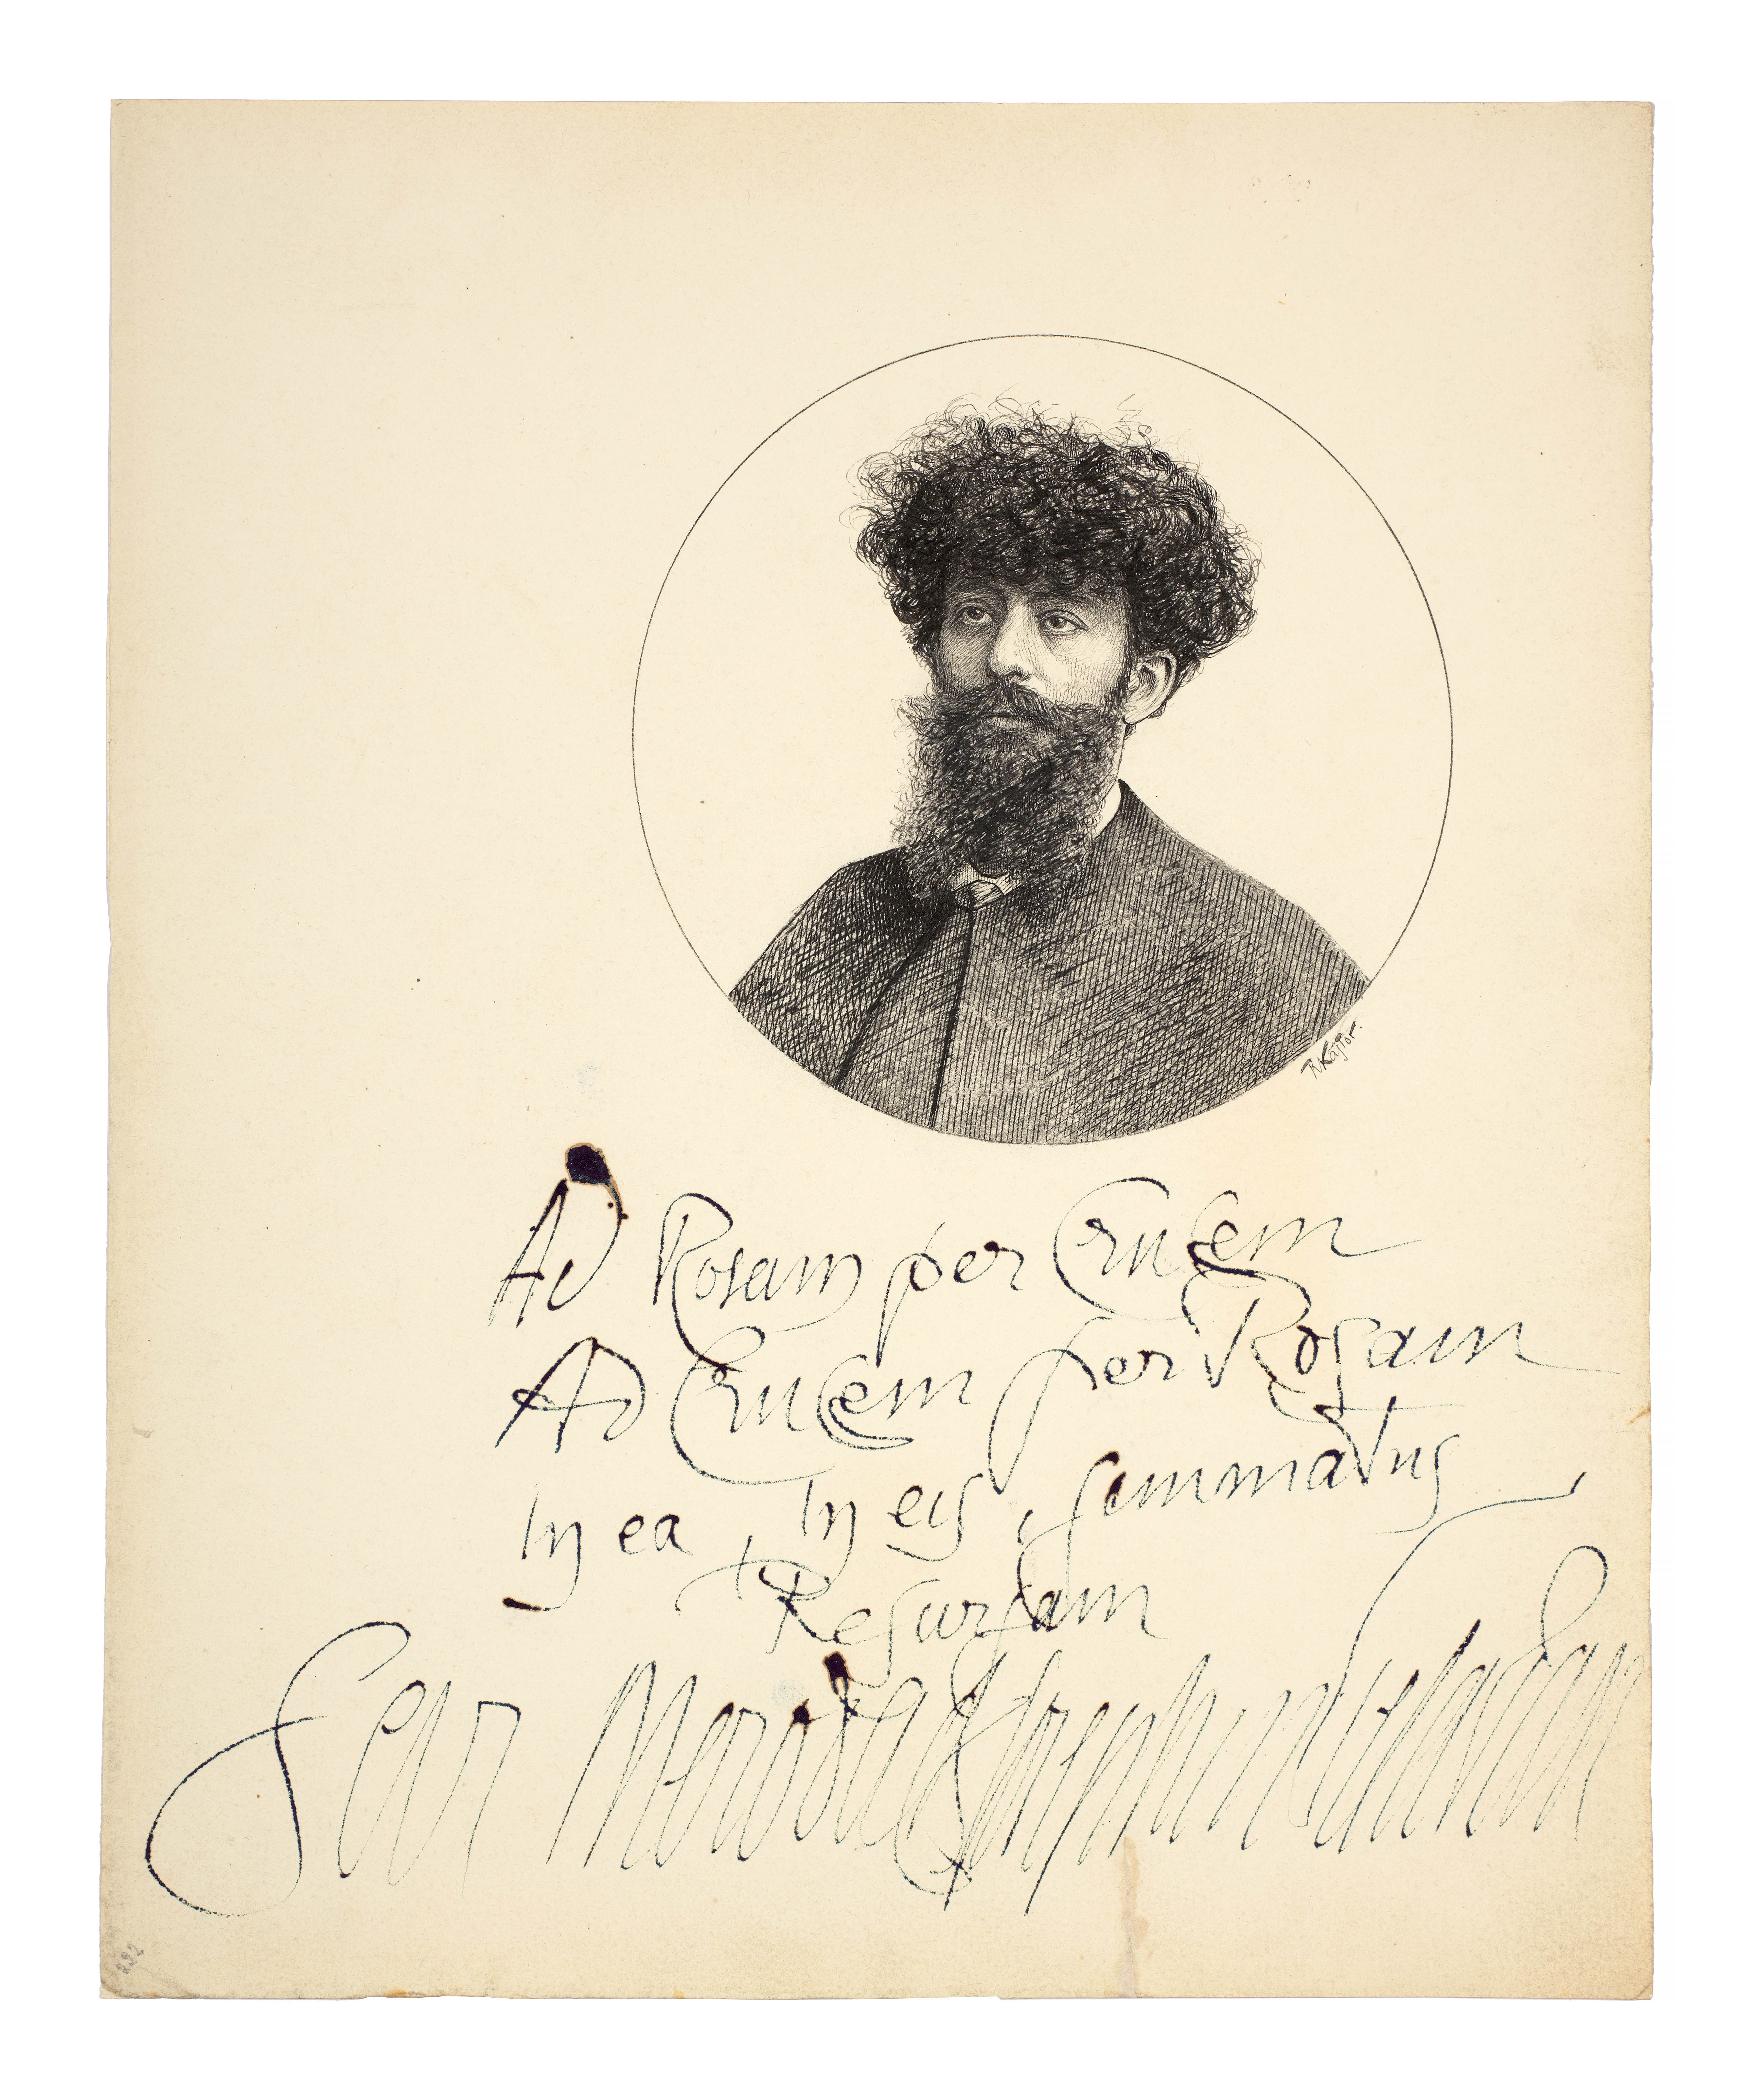 R. Kastor.
AD Rosam per Crucem
AD Crucem per Rosam
In ea, In eis, gemmatus
Resurgam
Sar Merodack Joséphin Peladan
292